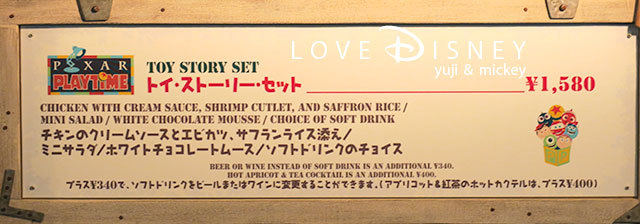 LOVE DISNEY
yuji & mickey
PIXAR
PLAYTIME
TOY STORY SET
トイ・ストーリー・セット ¥1,580
CHICKEN WITH CREAM SAUCE, SHRIMP CUTLET, AND SAFFRON RICE /
MINI SALAD / WHITE CHOCOLATE MOUSSE / CHOICE OF SOFT DRINK
チキンのクリームソースとエビカツ、サフランライス添え/
ミニサラダ/ホワイトチョコレートムース/ソフトドリンクのチョイス
BEER OR WINE INSTEAD OF SOFT DRINK IS AN ADDITIONAL ¥340.
HOT APRICOT & TEA COCKTAIL IS AN ADDITIONAL ¥400.
プラス¥340で、ソフトドリンクをビールまたはワインに変更することができます。(アプリコット&紅茶のホットカクテルは、プラス¥400)